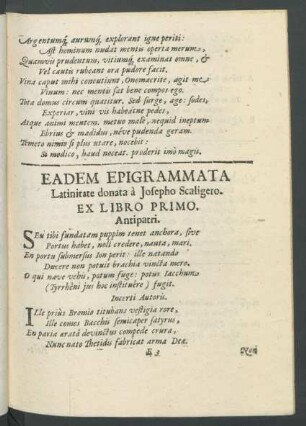 Argentumq́; aurumq́; explorant igne periti:
Ast hominum nudat mentis operta merum,
Quamvis prudentum, vitiumq́; examinat omne, &
Vel cautis rubeant ora pudore facit.
Vina caput mihi concutiunt, Onomacrite, agit me
Vinum: nec mentis sat bene compos ego.
Tota domus circum quatitur. Sed surge, age: sedes,
Experiar, vini vis habeatne pedes,
Atque animi mentem. metuo malè, nequid ineptum
Ebrius & madidus, néve pudenda geram.
Temeto nimio si plus utare, nocebit:
Si modico, haud noceat. proderit imò magis.
EADEM EPIGRAMMATA
Latinitate donata à Josepho Scaligero.
EX LIBRO PRIMO.
Antipatri.
SEu tibi fundatam puppim tenet anchora, sive
Portus habet, noli credere, nauta, mari.
En portu submersus Ion perit: ille natando
Ducere non potuit brachia vincta mero.
O qui nave vehis, potum fuge: potus Iacchum
(Tyrrhêni jus hoc instituêre) fugit.
Incerti Autoris.
ILle prius Bromio titubans vestigia rore,
Ille comes Bacchi semicaper satyrus,
En paria aratâ devinctus compede crura,
Nunc nato Thetidis fabricat arma Deæ.